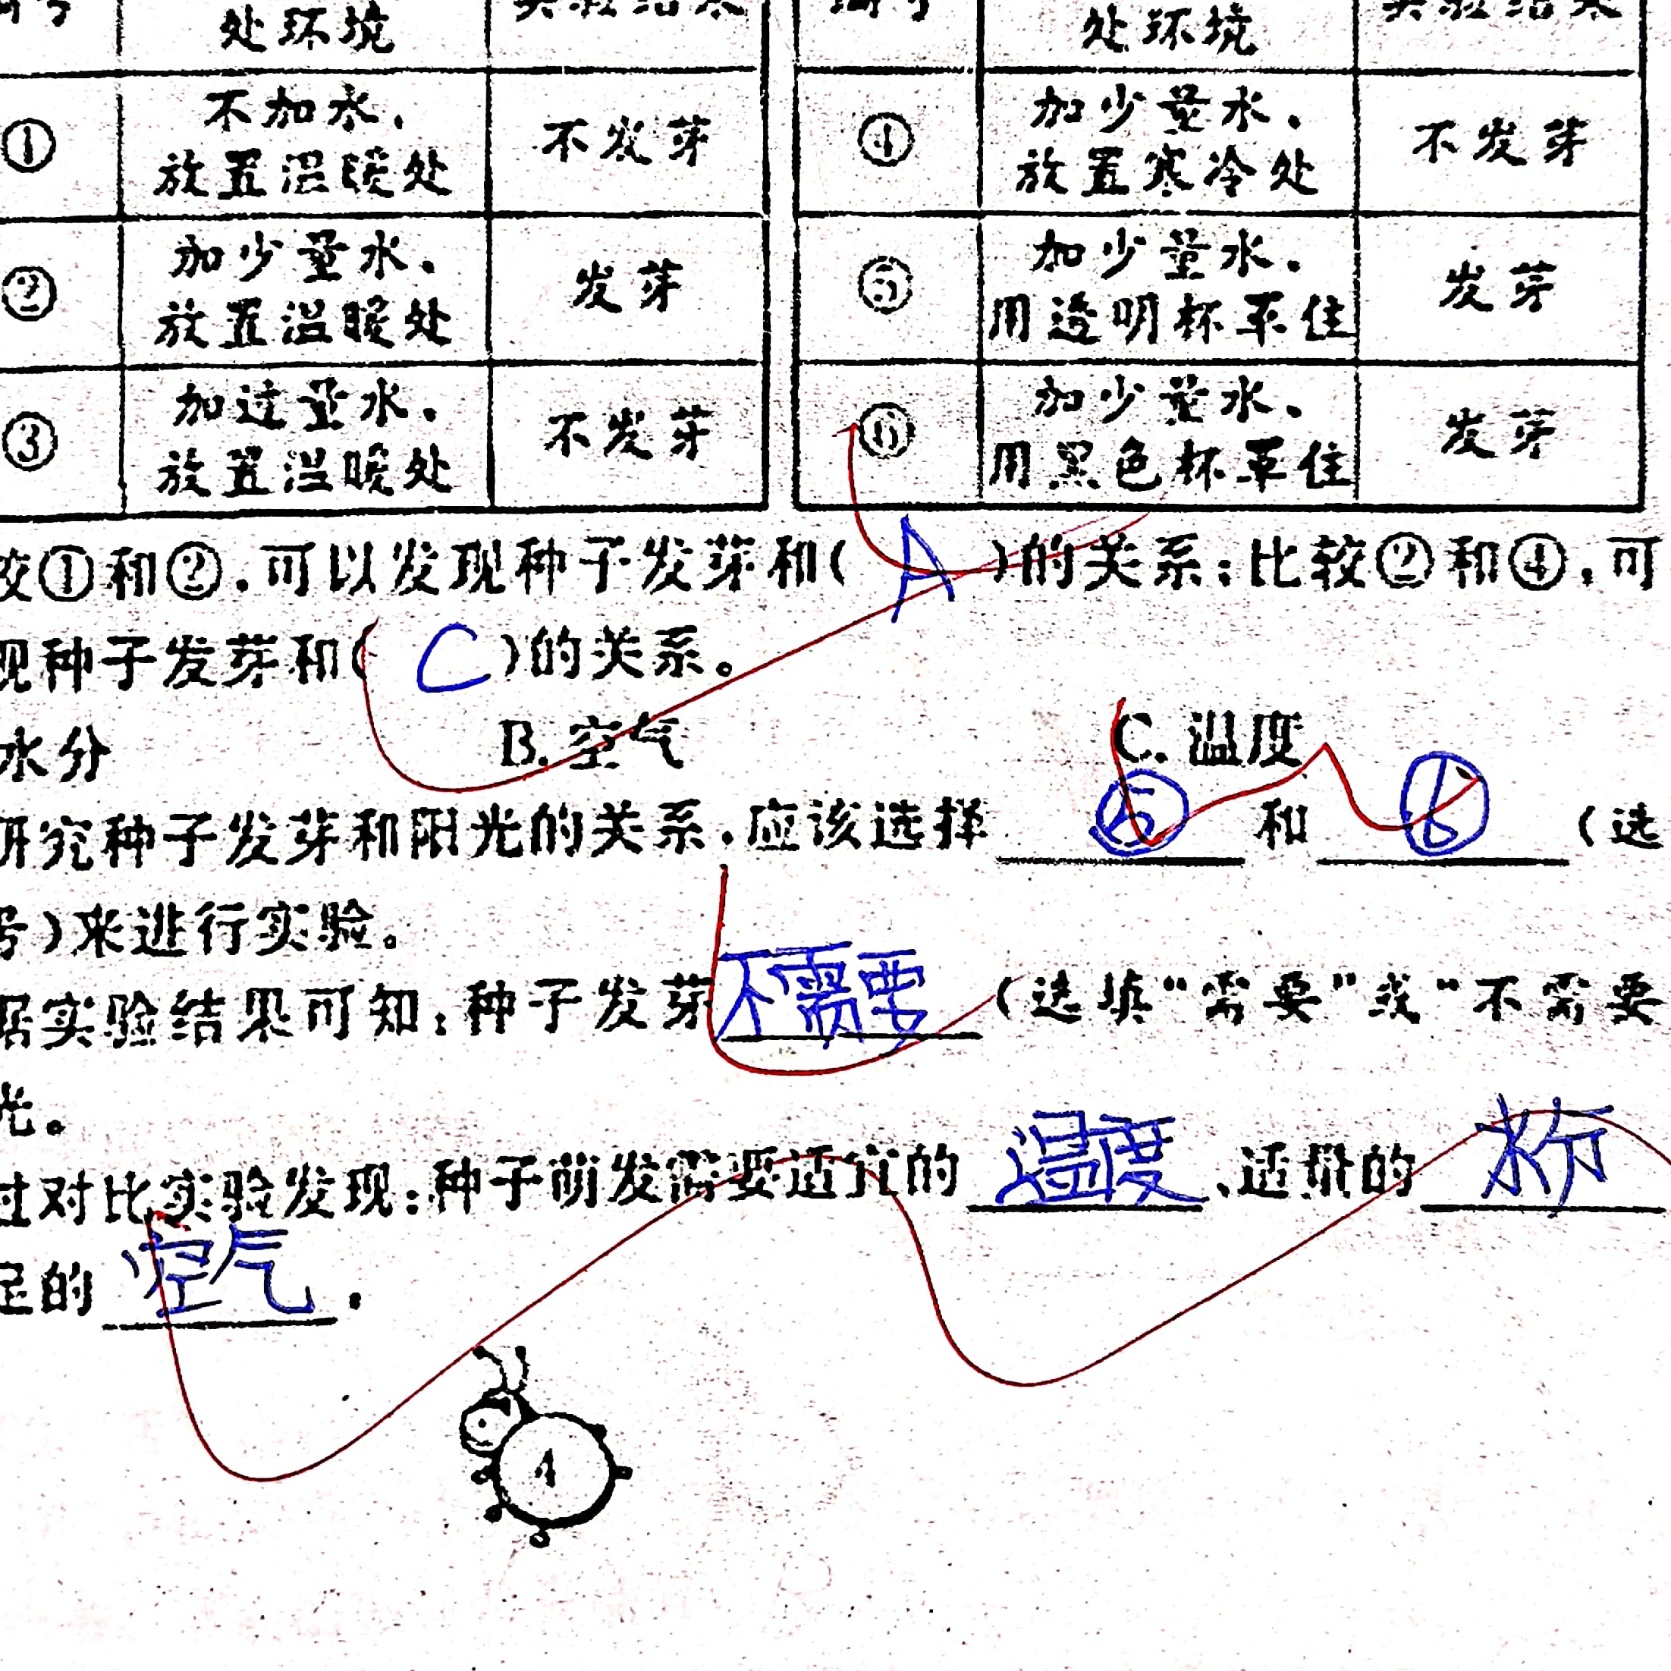 处环境
处环境
① 不加水、放置温暖处 不发芽 ④ 加少量水、放置寒冷处 不发芽
② 加少量水、放置温暖处 发芽 ⑤ 加少量水、用透明杯罩住 发芽
③ 加过量水、放置温暖处 不发芽 ⑥ 加少量水、用黑色杯罩住 发芽
较①和②,可以发现种子发芽和( A )的关系;比较②和④,可
现种子发芽和( C )的关系。
水分 B. 空气 C. 温度
研究种子发芽和阳光的关系,应该选择 ⑤ 和 ⑥ (选
号)来进行实验。
据实验结果可知:种子发芽不需要(选填“需要”或“不需要
光。
过对比实验发现:种子萌发需要适宜的 温度 、适量的 水分
足的 空气 。
4